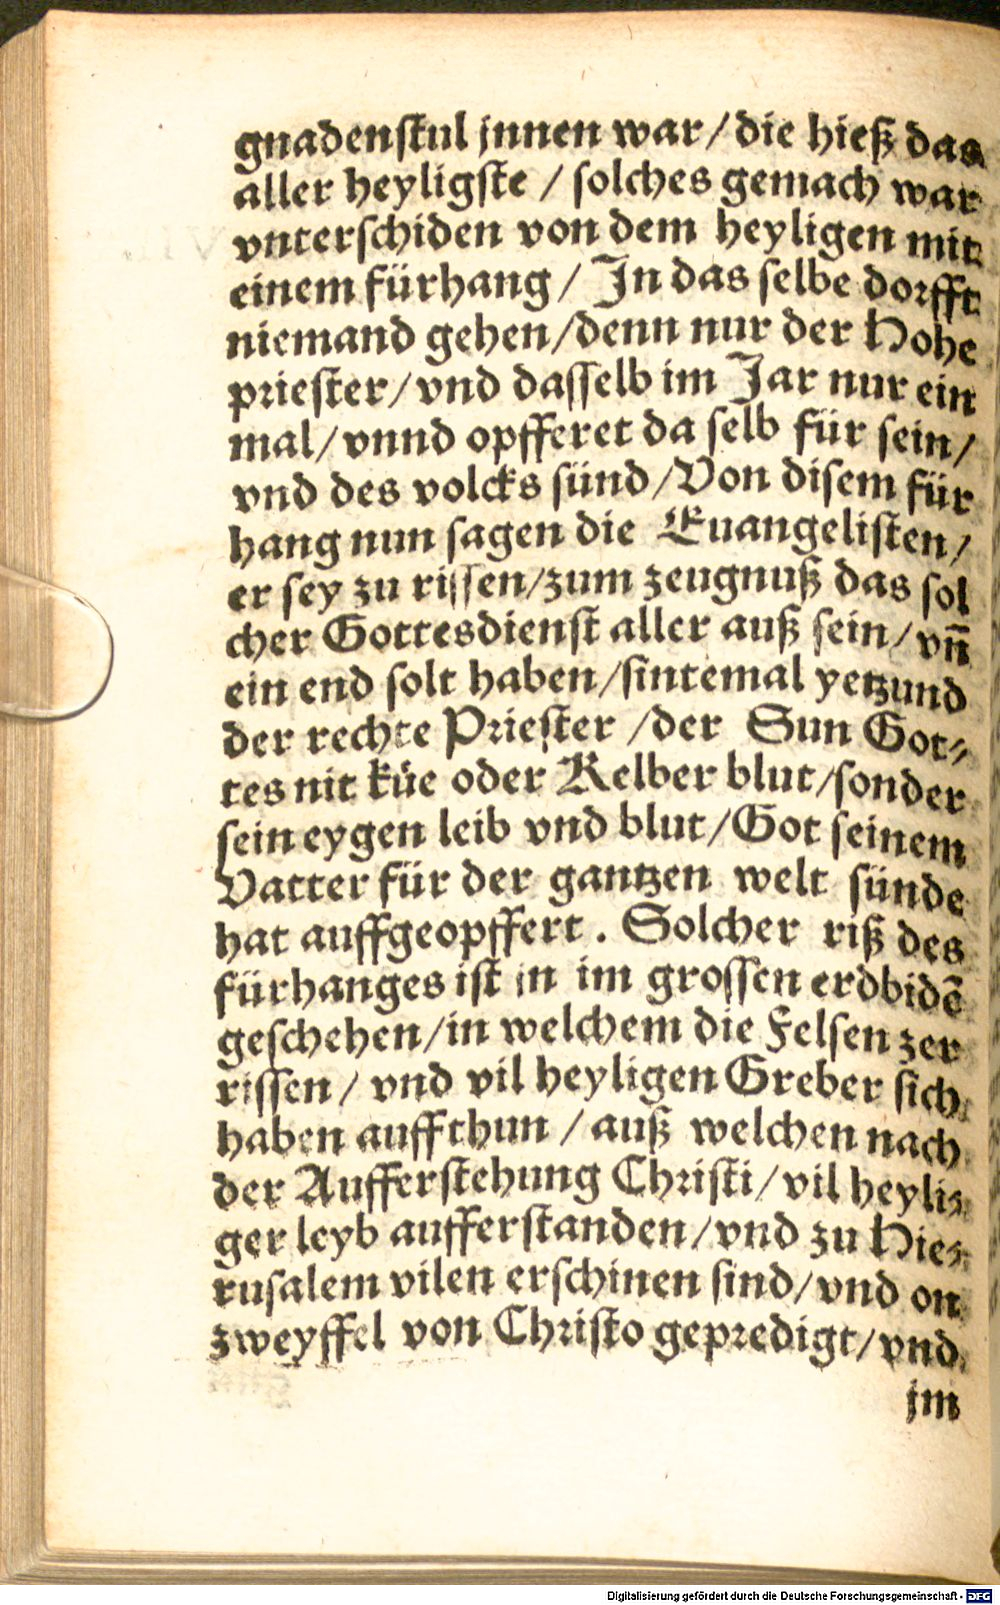 gnadenſtul jnnen war/die hieß das
aller heyligſte / ſolches gemach war
vnterſchiden von dem heyligen mit
einem fürhang / In das ſelbe dorfft
niemand gehen/denn nur der Hohe
prieſter/vnd daſſelb im Jar nur ein
mal/vnnd opfferet da ſelb für ſein/
vnd des volcks ſünd/Von diſem für
hang nun ſagen die Euangeliſten/
er ſey zu riſſen/zum zeugnuß das ſol
cher Gottesdienſt aller auß ſein/vñ
ein end ſolt haben/ſintemal yetzund
der rechte Prieſter /der Sun Got⸗
tes nit küe oder Kelber blut/ſonder
ſein eygen leib vnd blut/Got ſeinem
Vatter für der gantzen welt ſünde
hat auffgeopffert. Solcher riß des
fürhanges iſt in im groſſen erdbidẽ
geſchehen/in welchem die Felſen zer
riſſen/ vnd vil heyligen Greber ſich
haben auffthun / auß welchen nach
der Aufferſtehung Chriſti/vil heyli⸗
ger leyb aufferſtanden/vnd zu Hie⸗
ruſalem vilen erſchinen ſind/vnd on
zweyffel von Chriſto gepredigt/vnd
jm
Digitalisierung gefördert durch die Deutsche Forschungsgemeinschaft - DFG